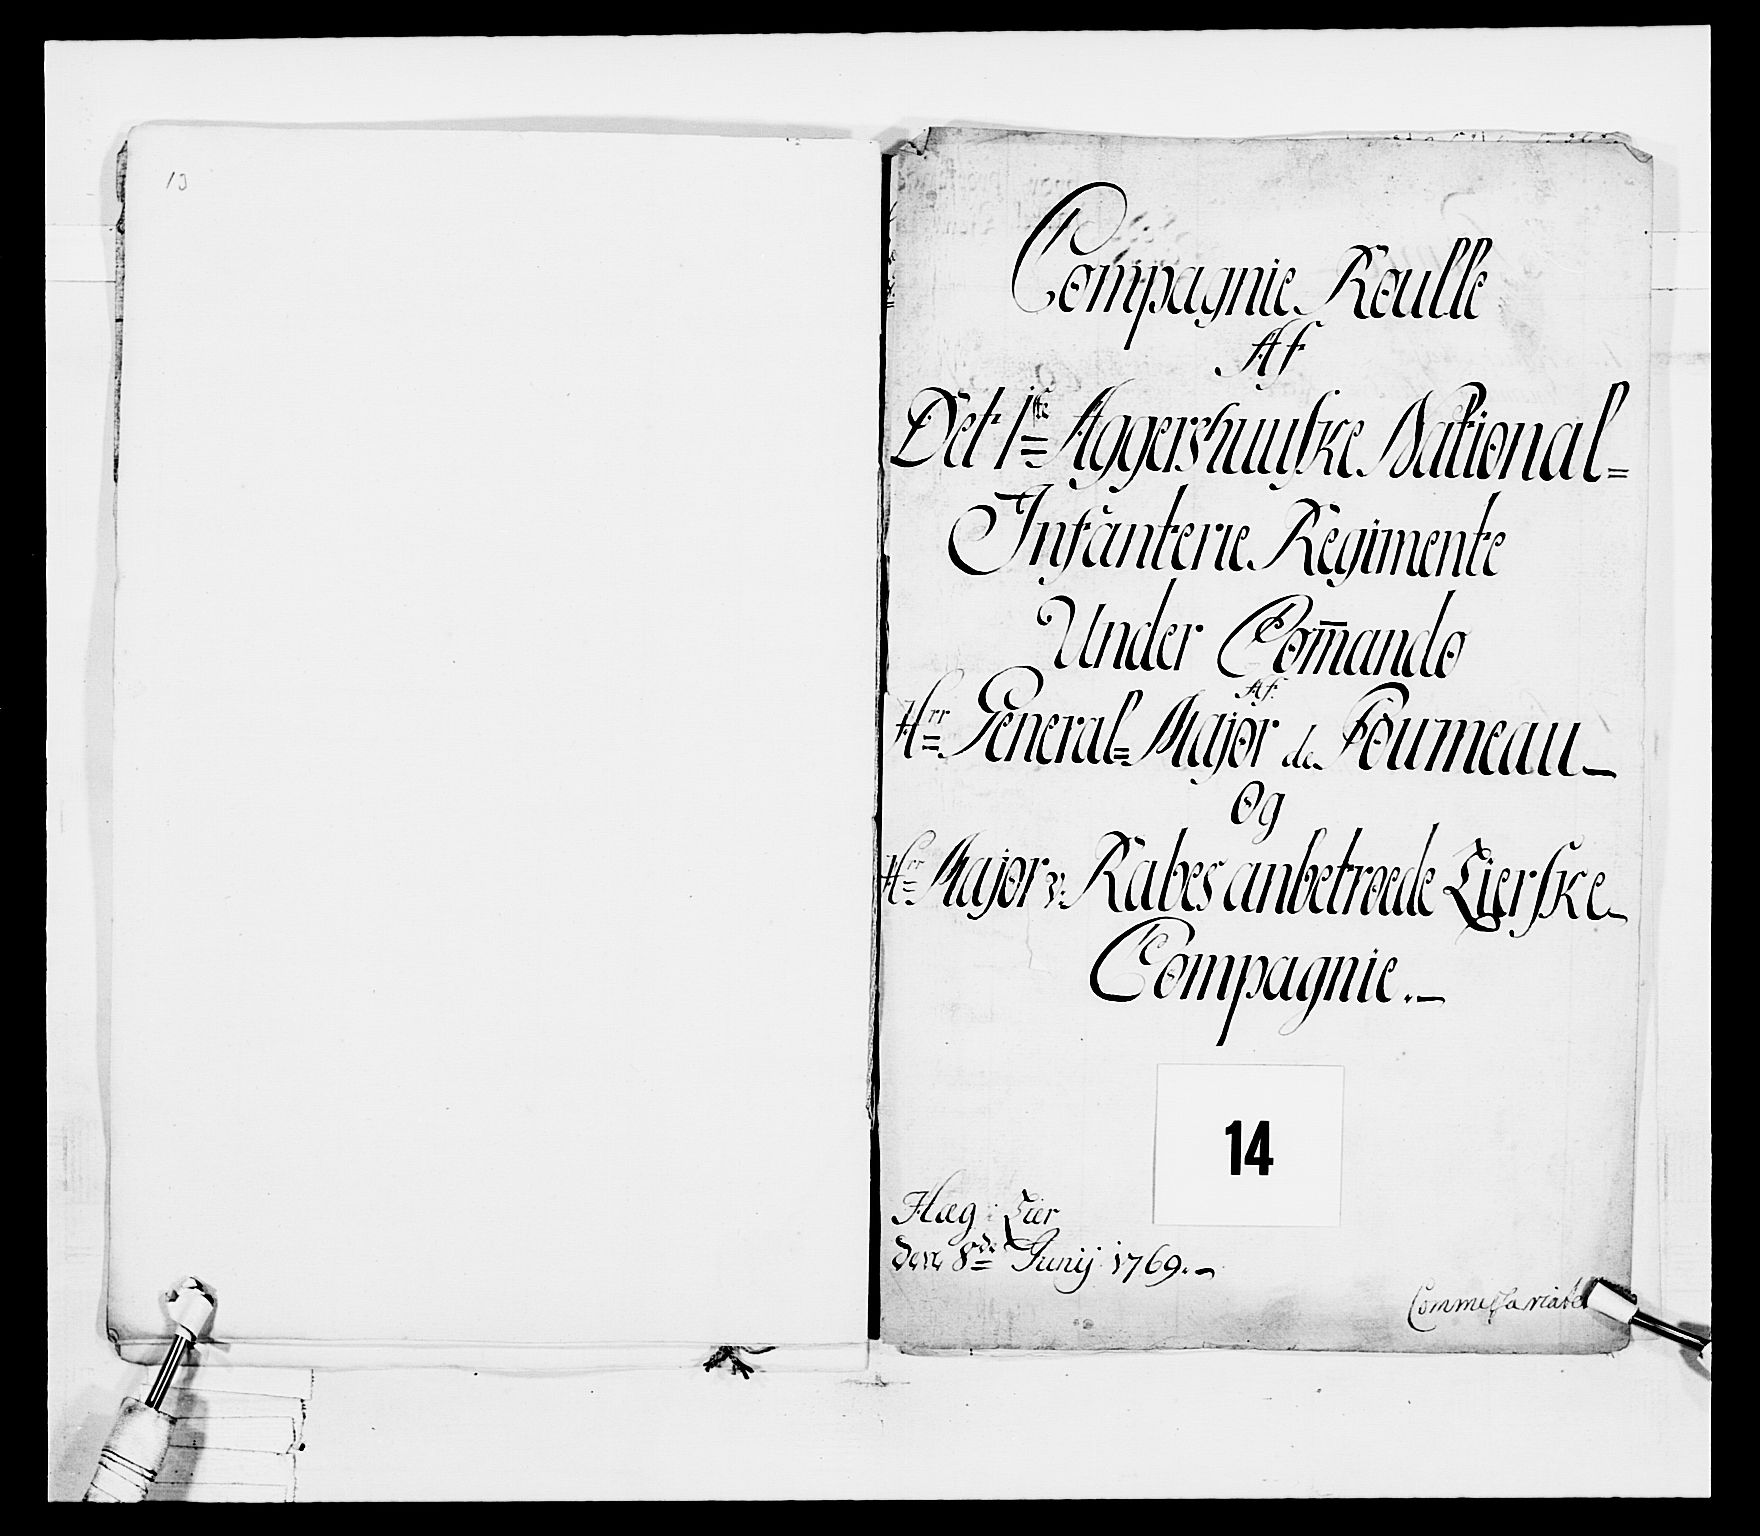 13
Compagnie Roulle
Af
Det 1ste Aggershuuske National=
Infanterie Regimente
Under Com̄ando
Af
Hrr General= Major de Foumeau
Og
Hrr Major v: Rabes anbetroede Lierske
Compagnie.
14
Hæg i Lier
den 8de Junij 1769.
Commissariatet